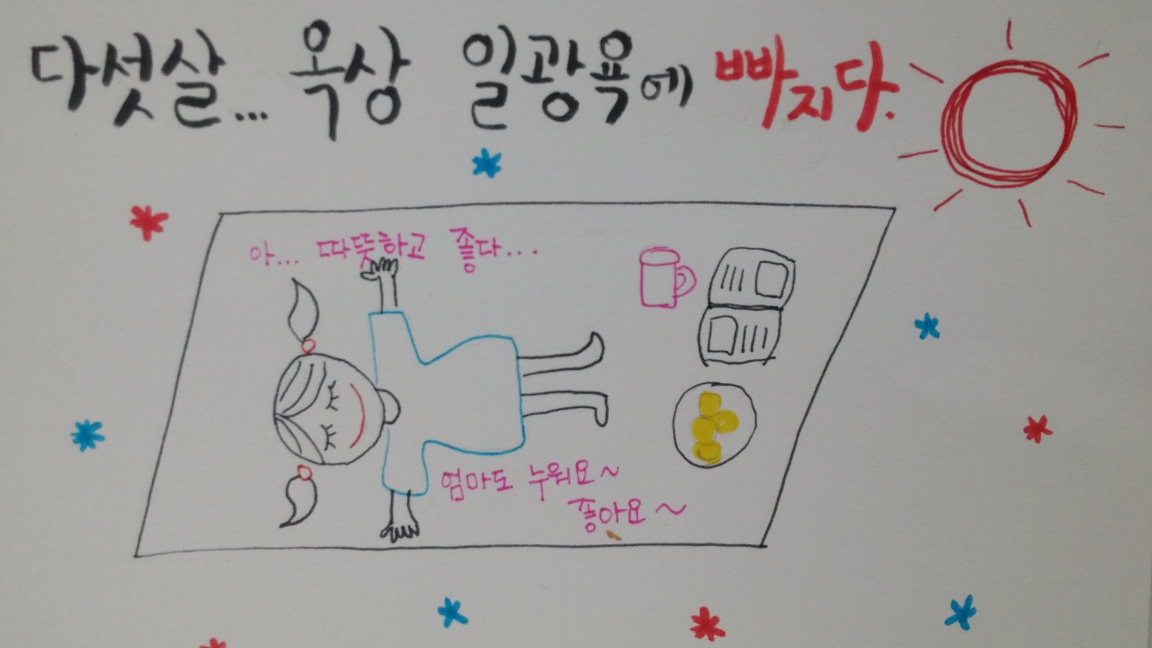 다섯살... 옥상 일광욕에 빠지다.
아... 따뜻하고 좋다...
엄마도 누워요~
좋아요~